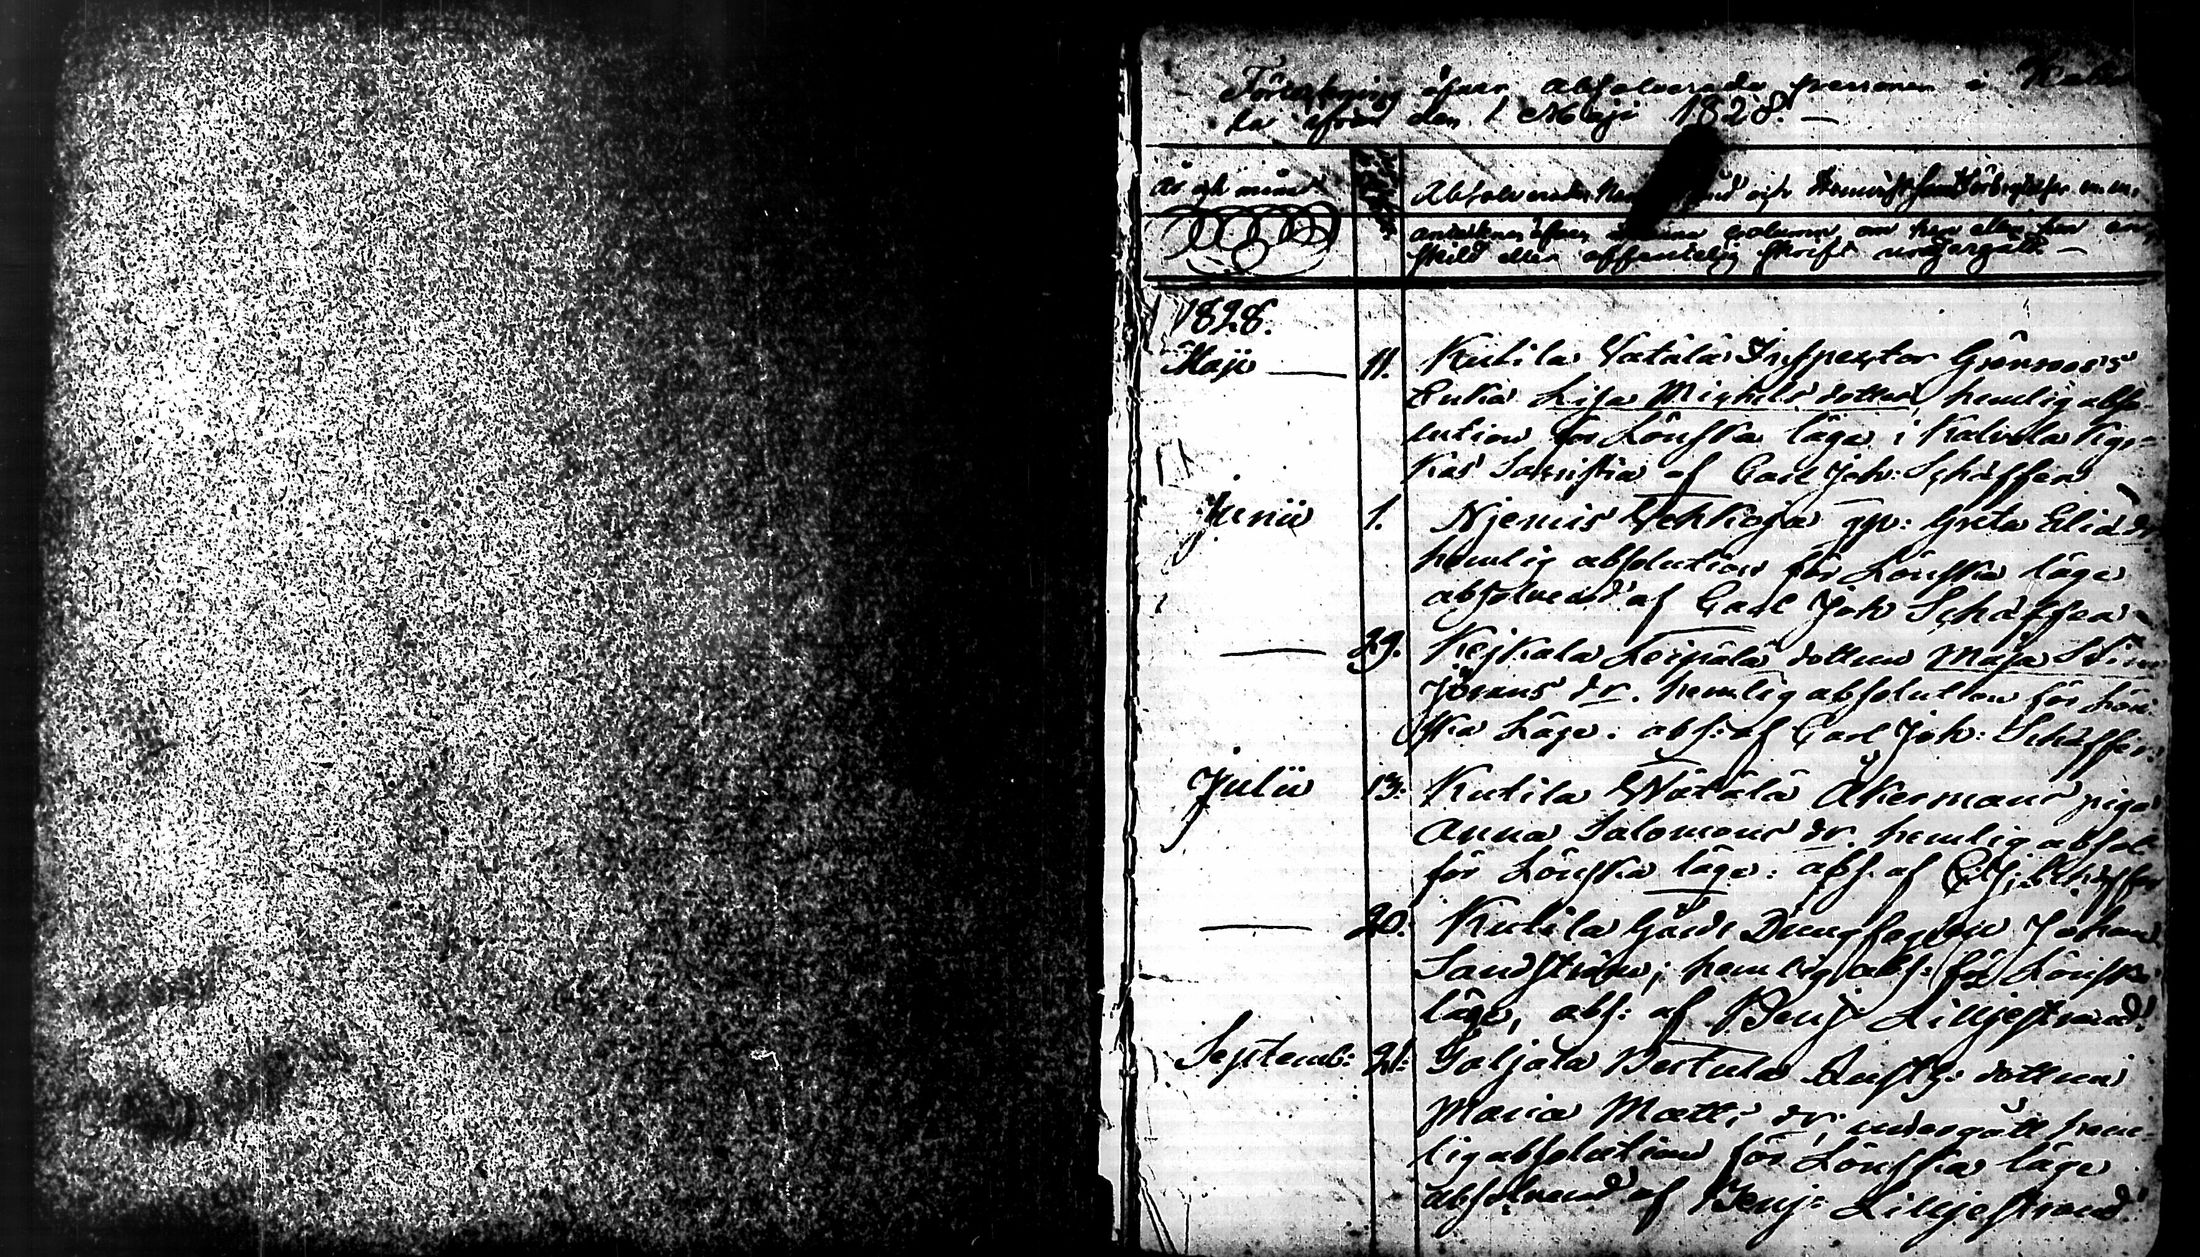 Förteckning öfver absolverade personer i Kalvo-
la ifrån den 1 Maji 1828. —
År och mån:
Absolverades hemvist samt förbrytelse
anteckna öfver denna column, om hen eller han en-
skild eller offentelig skrift undergått. —
1828.
Maji 11. Kutila Vätälä Inspector Grönroos's
Enka Lisa Michels dotter, hemlig abso-
lution för Lönska läge i Kalvola Kyr-
kas Sacristia af Carl Joh: Schäffer
Junii 1. Njemis Uehkoja gp: Greta Elias dr
hemlig absolution för Lönska läge
absolverad af Carl Joh Schäffer
29. Keikala Leipälä dottren Maja Stina
Jörans dr. hemlig absolution för Lön-
ska Läge. abs: af Carl Joh: Schäffer
Julii 13. Kutila Wätälä Åkermans piga
Anna Salomons dr. hemlig absol.
för Lönska läge: abs. af C. J. Schäffer
20. Kutila Gårds Drengsven Johan
Sandström; hemlig abs: för Lönska
läge, abs: af Benj: Lilljestrand.
Septemb: 21. Taljala Bertula dottren
Maria Matts dr. undergått hem-
lig absolution för Lönska läge
absolverad af Benj: Lilljestrand.